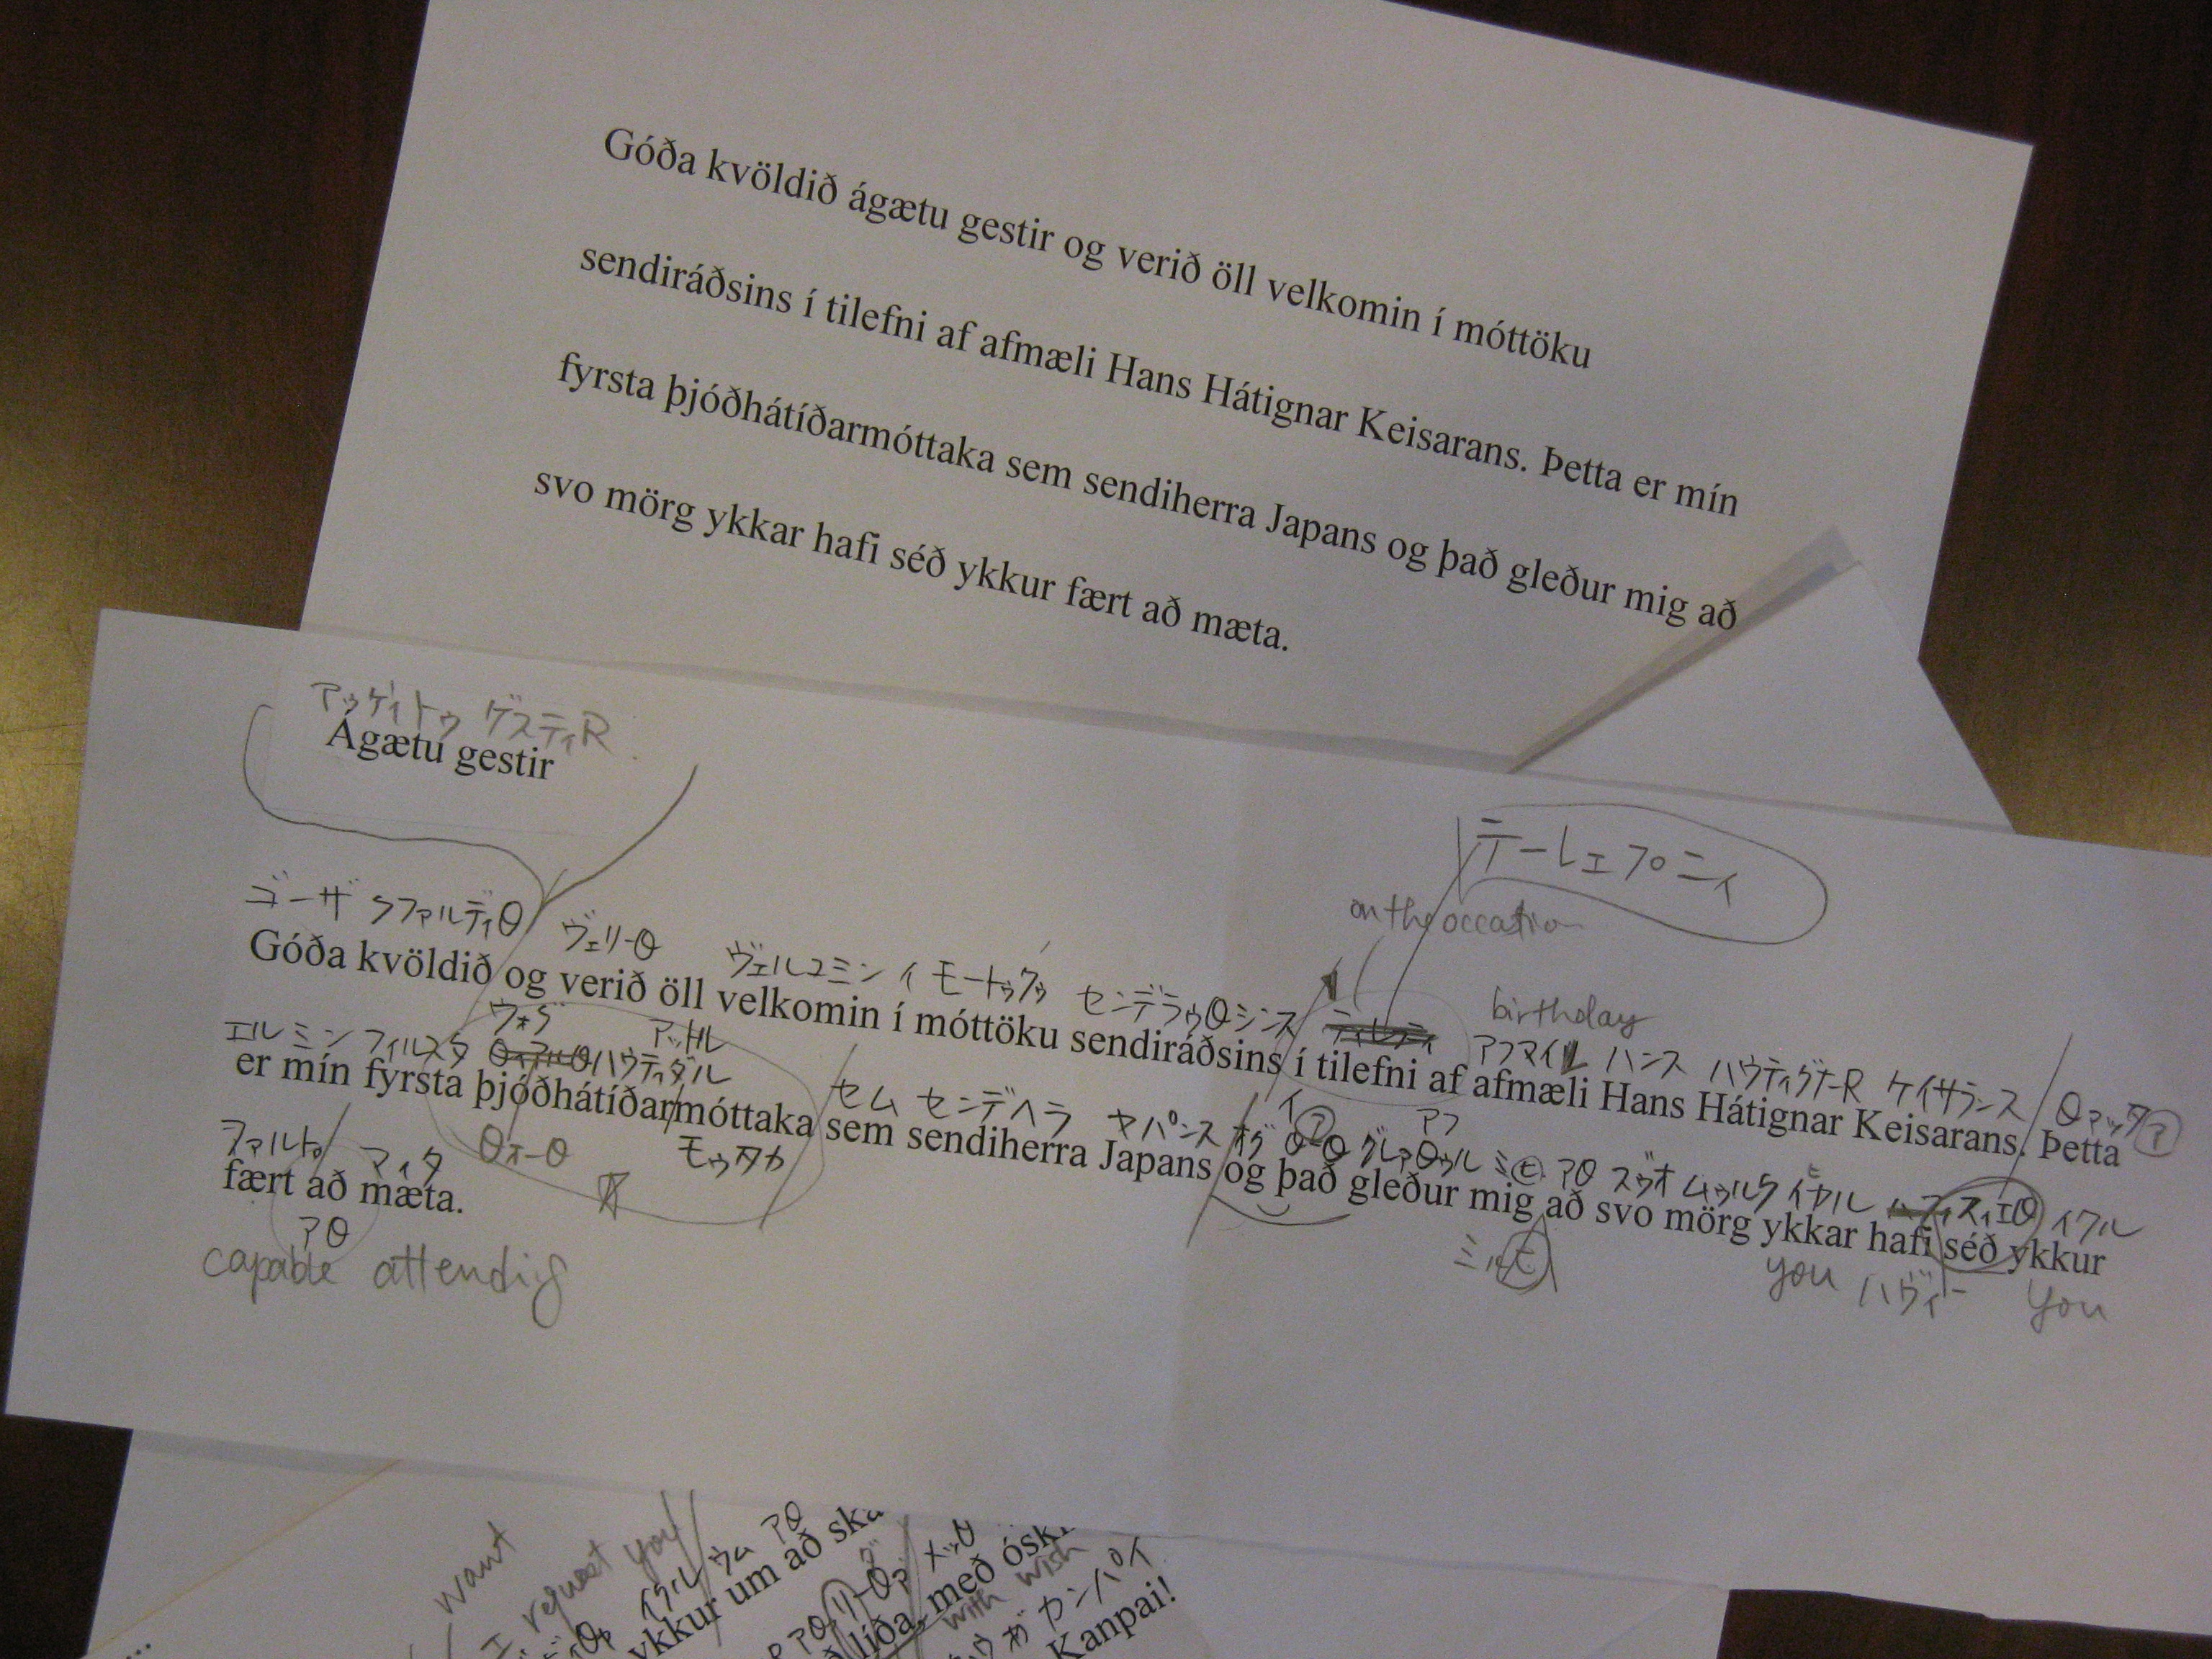 Góða kvöldið ágætu gestir og verið öll velkomin í móttöku
sendiráðsins í tilefni af afmæli Hans Hátignar Keisarans. Þetta er mín
fyrsta þjóðhátíðarmóttaka sem sendiherra Japans og það gleður mig að
svo mörg ykkar hafi séð ykkur fært að mæta.
アゥゲイトゥ ゲスティR
Ágætu gestir
テーレェプニィ
on the occation
ゴーザ クファルディθ ヴェリーθ ヴェルコミン イ モートゥクゥ センデラゥθシンス
birthday
アフマイル ハンス ハウティグナーR ケイサランス θアッタ ア
Góða kvöldið og verið öll velkomin í móttöku sendiráðsins í tilefni af afmæli Hans Hátignar Keisarans. Þetta
エル ミン フィルスタ ハウティダル セム センデヘラ ヤパンス オグ アθ イクル
er mín fyrsta þjóðhátíðarmóttaka sem sendiherra Japans og það gleður mig að svo mörg ykkar hafi séð ykkur
θォーθ モゥタカ
you ハヴィー you
マイタ
fært að mæta.
アθ
capable attending
want
I request you
イクル ウム アθ
ykkur um að
líða, með
with wish
カンパイ
Kanpai!